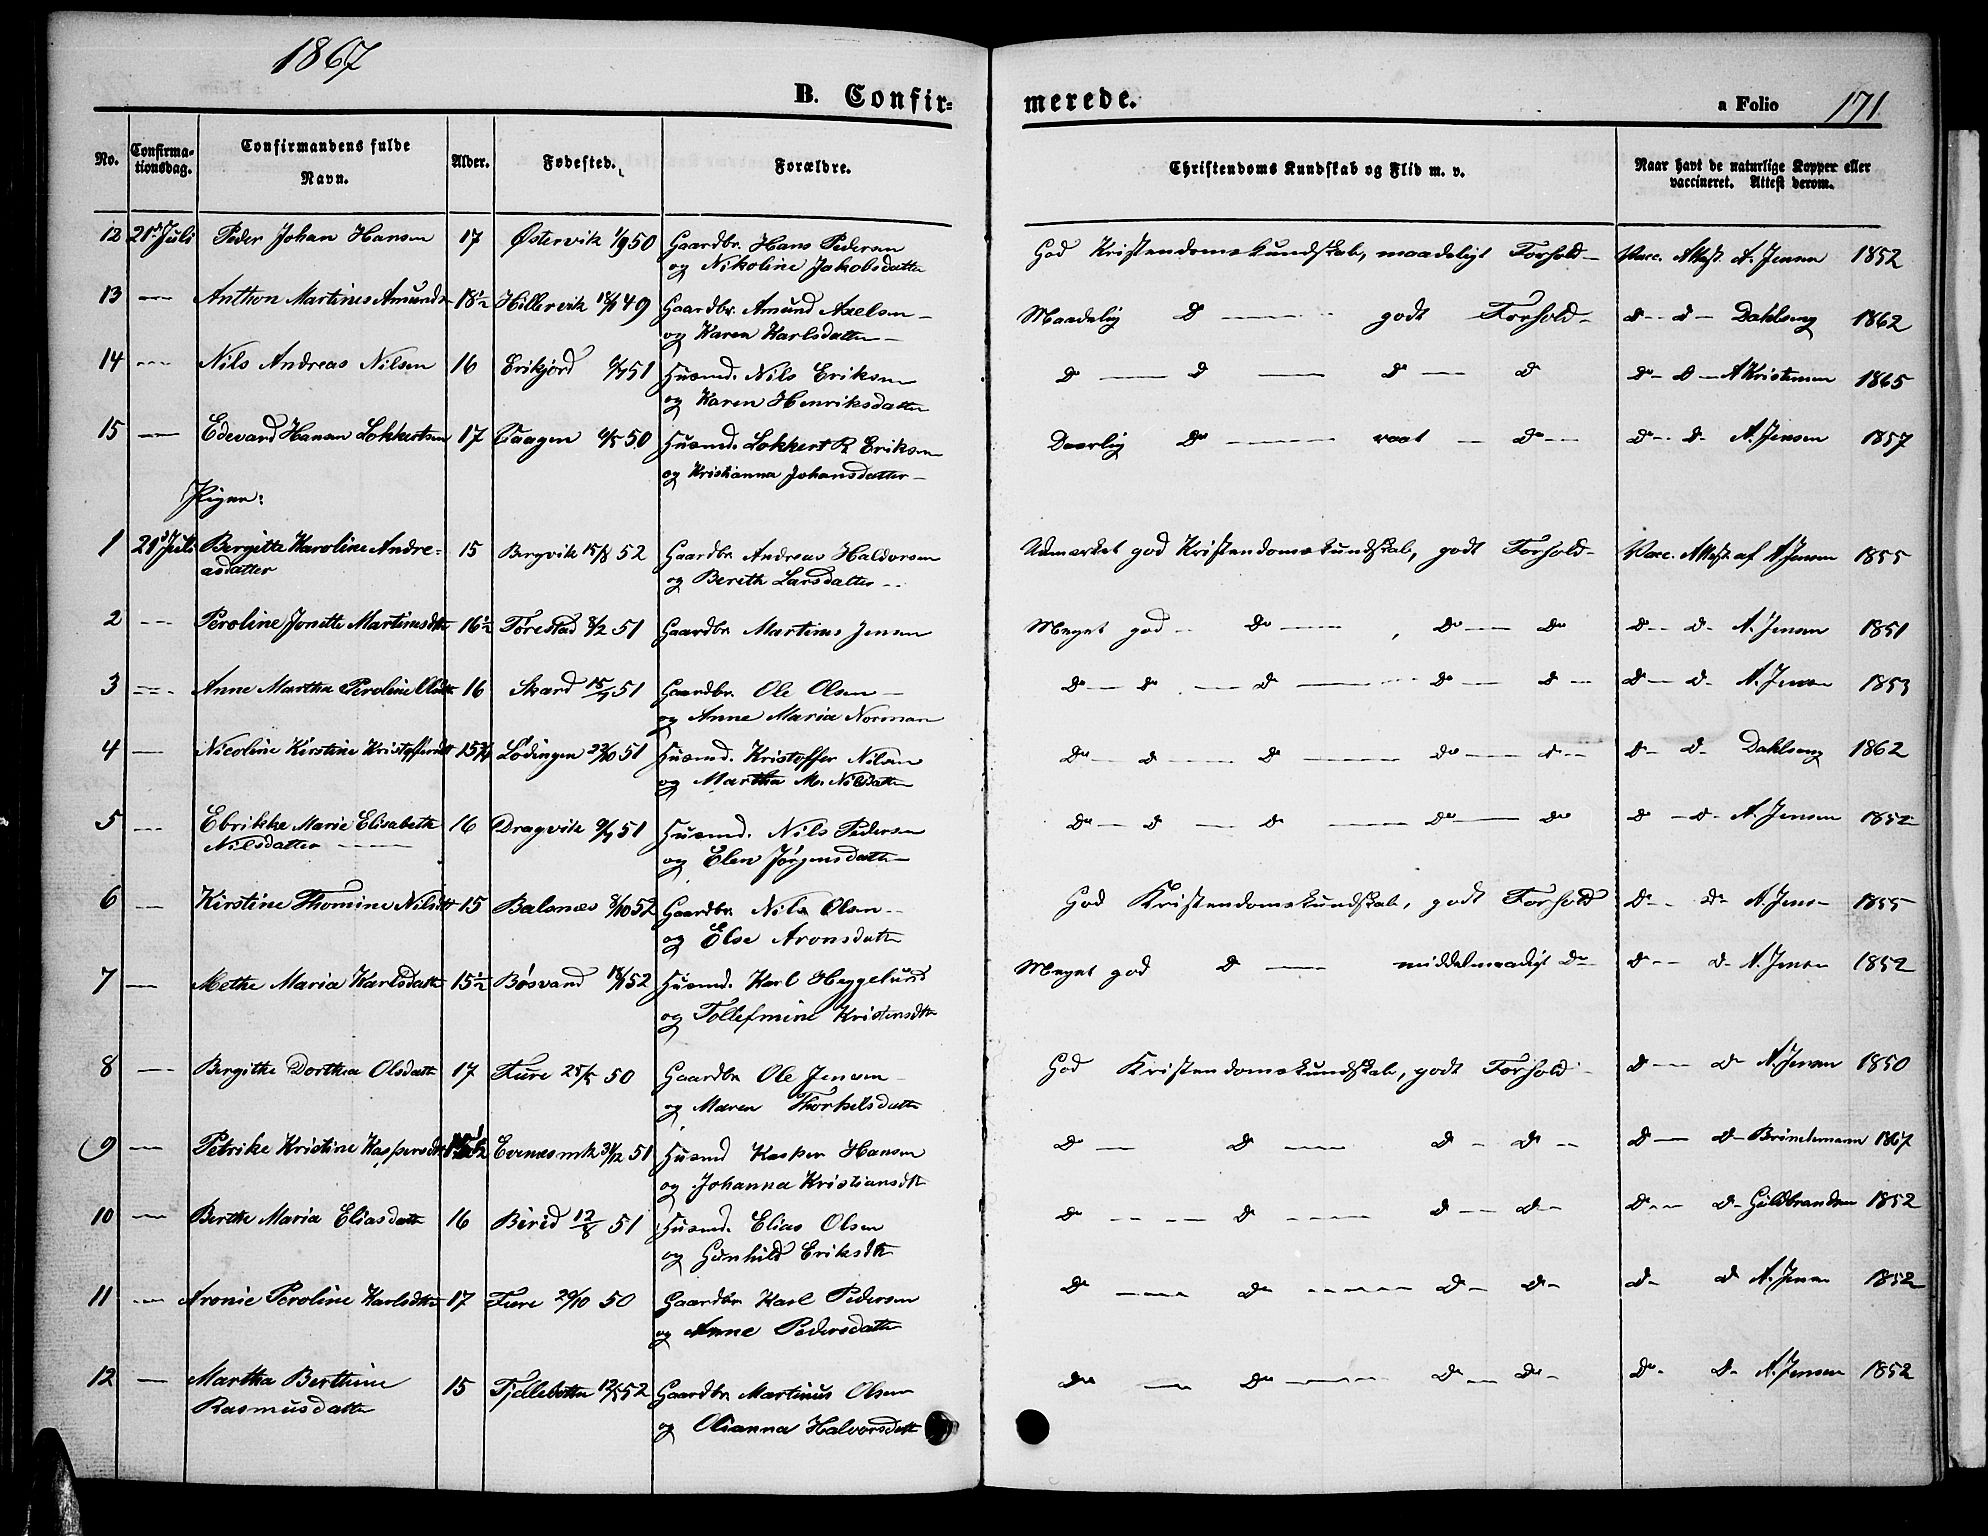 1867
B. Confir= merede.
a Folio 171
No. Confirma=tionsdag. Confirmandens fulde Navn. Alder. Fødested. Forældre. Christendoms Kundskab og Flid m. v. Naar havt de naturlige Kopper eller vaccineret. Attest derom.
12 21de Juli Peder Johan Hansen 17 Østervik 1/9 50 Gaardbr. Hans Pedersen God Kristendomskundskab, maadeligt Forhold – Vacc. Attest. A. Jensen 1852
og Nikoline Jakobsdatter
13 — Anthon Martines Amunds 18½ Hillervik 49 Gaardbr. Amund Axelsen – Maadelig do — godt Forhold – do – do – Dahlseng 1862
og Karen Karlsdatter –
14 — Nils Andreas Nilsen 16 Erikjord 51 Husmd. Nils Eriksen do — do — do — do do – do – A Kristensen 1865
og Karen Henriksdatter
15 — Edevard Hansen Lokkertsen 17 Taagen 50 Husmd. Lokkert R Eriksen Daarlig do — raat – do – do – do A. Jensen 1857
og Kristianna Johansdatter –
Piger:
1 21de Juli Bergitte Karoline Andre= 15 Bergvik 15/8 52 Gaardbr Andreas Haldorsen Udmærket god Kristendomskundskab, godt Forhold – Vacc. Attest. af A Jensen 1855
asdatter og Bereth Larsdatter –
2 — Peroline Jonette Martinusdtr 16½ Tørestad 8/2 51 Gaardbr Martinus Jensen Meget god – do — , do — do do – do – A. Jensen 1851
3 — Anne Martha Peroline Olsdtr 16 Skard 15/7 51 Gaardbr. Ole Olsen – do – do – do — do — do – do – do – A. Jensen 1853
og Anne Maria Norman
4 — Nicoline Kirstine Kristoffersdt 15¾ Lødingen 22/10 51 Husmd. Kristoffer Nilsen do – do — do — do — do – do – do – Dahlseng 1862
og Martha M. Nilsdatter
5 — Ebrikke Marie Elisabeth 16 Dragvik 51 Husmd. Nils Pedersen do – do — do — do — do do – do – A. Jensen 1852
Nilsdatter — og Elen Jørgensdatter –
6 — Kirstine Thomine Nilsdt 15 Balsnes 8/10 52 Gaardbr. Nils Olsen – God Kristendomskundskab, godt Forhold do – do A. Jensen 1855
og Else Aronsdatter
7 — Methe Maria Karlsdatter 15½ Bøsvand 52 Husmd. Karl Heggelund Meget god do — middelmaadigt do – do – do – A. Jensen 1852
og Tollefmine Kristensdtr
8 — Bergitte Dorthea Olsdatter 17 Fure 25/5 50 Gaardbr Ole Jensen – God Kristendomskundskab, godt Forhold – do – do A. Jensen 1850
og Maren Thorkelsdatter
9 — Petrike Kristine Kaspersdtr 15½ Evenesmk 31/12 51 Husmd Kasper Hansen do – do — do – do – do – do – Brinchmann 1867
og Johanna Kristiansdtr
10 — Berthe Maria Eliasdatter 16 Beied 12/8 51 Husmd. Elias Olsen do – – – do — do – do – do – do – Guldbrandsen 1852
og Gunhild Eriksdtr
11 — Aronie Peroline Karlsdtr 17 Fure 29/10 50 Gaardbr Karl Pedersen do — do — do – do – do – do A. Jensen 1852
og Anne Pedersdatter
12 — Martha Berthine 15 Fjellebotten 12/5 52 Gaardbr Martinus Olsen do — do — do – do – do – do – A. Jensen 1852
Rasmusdatter og Olianna Halvorsdatter